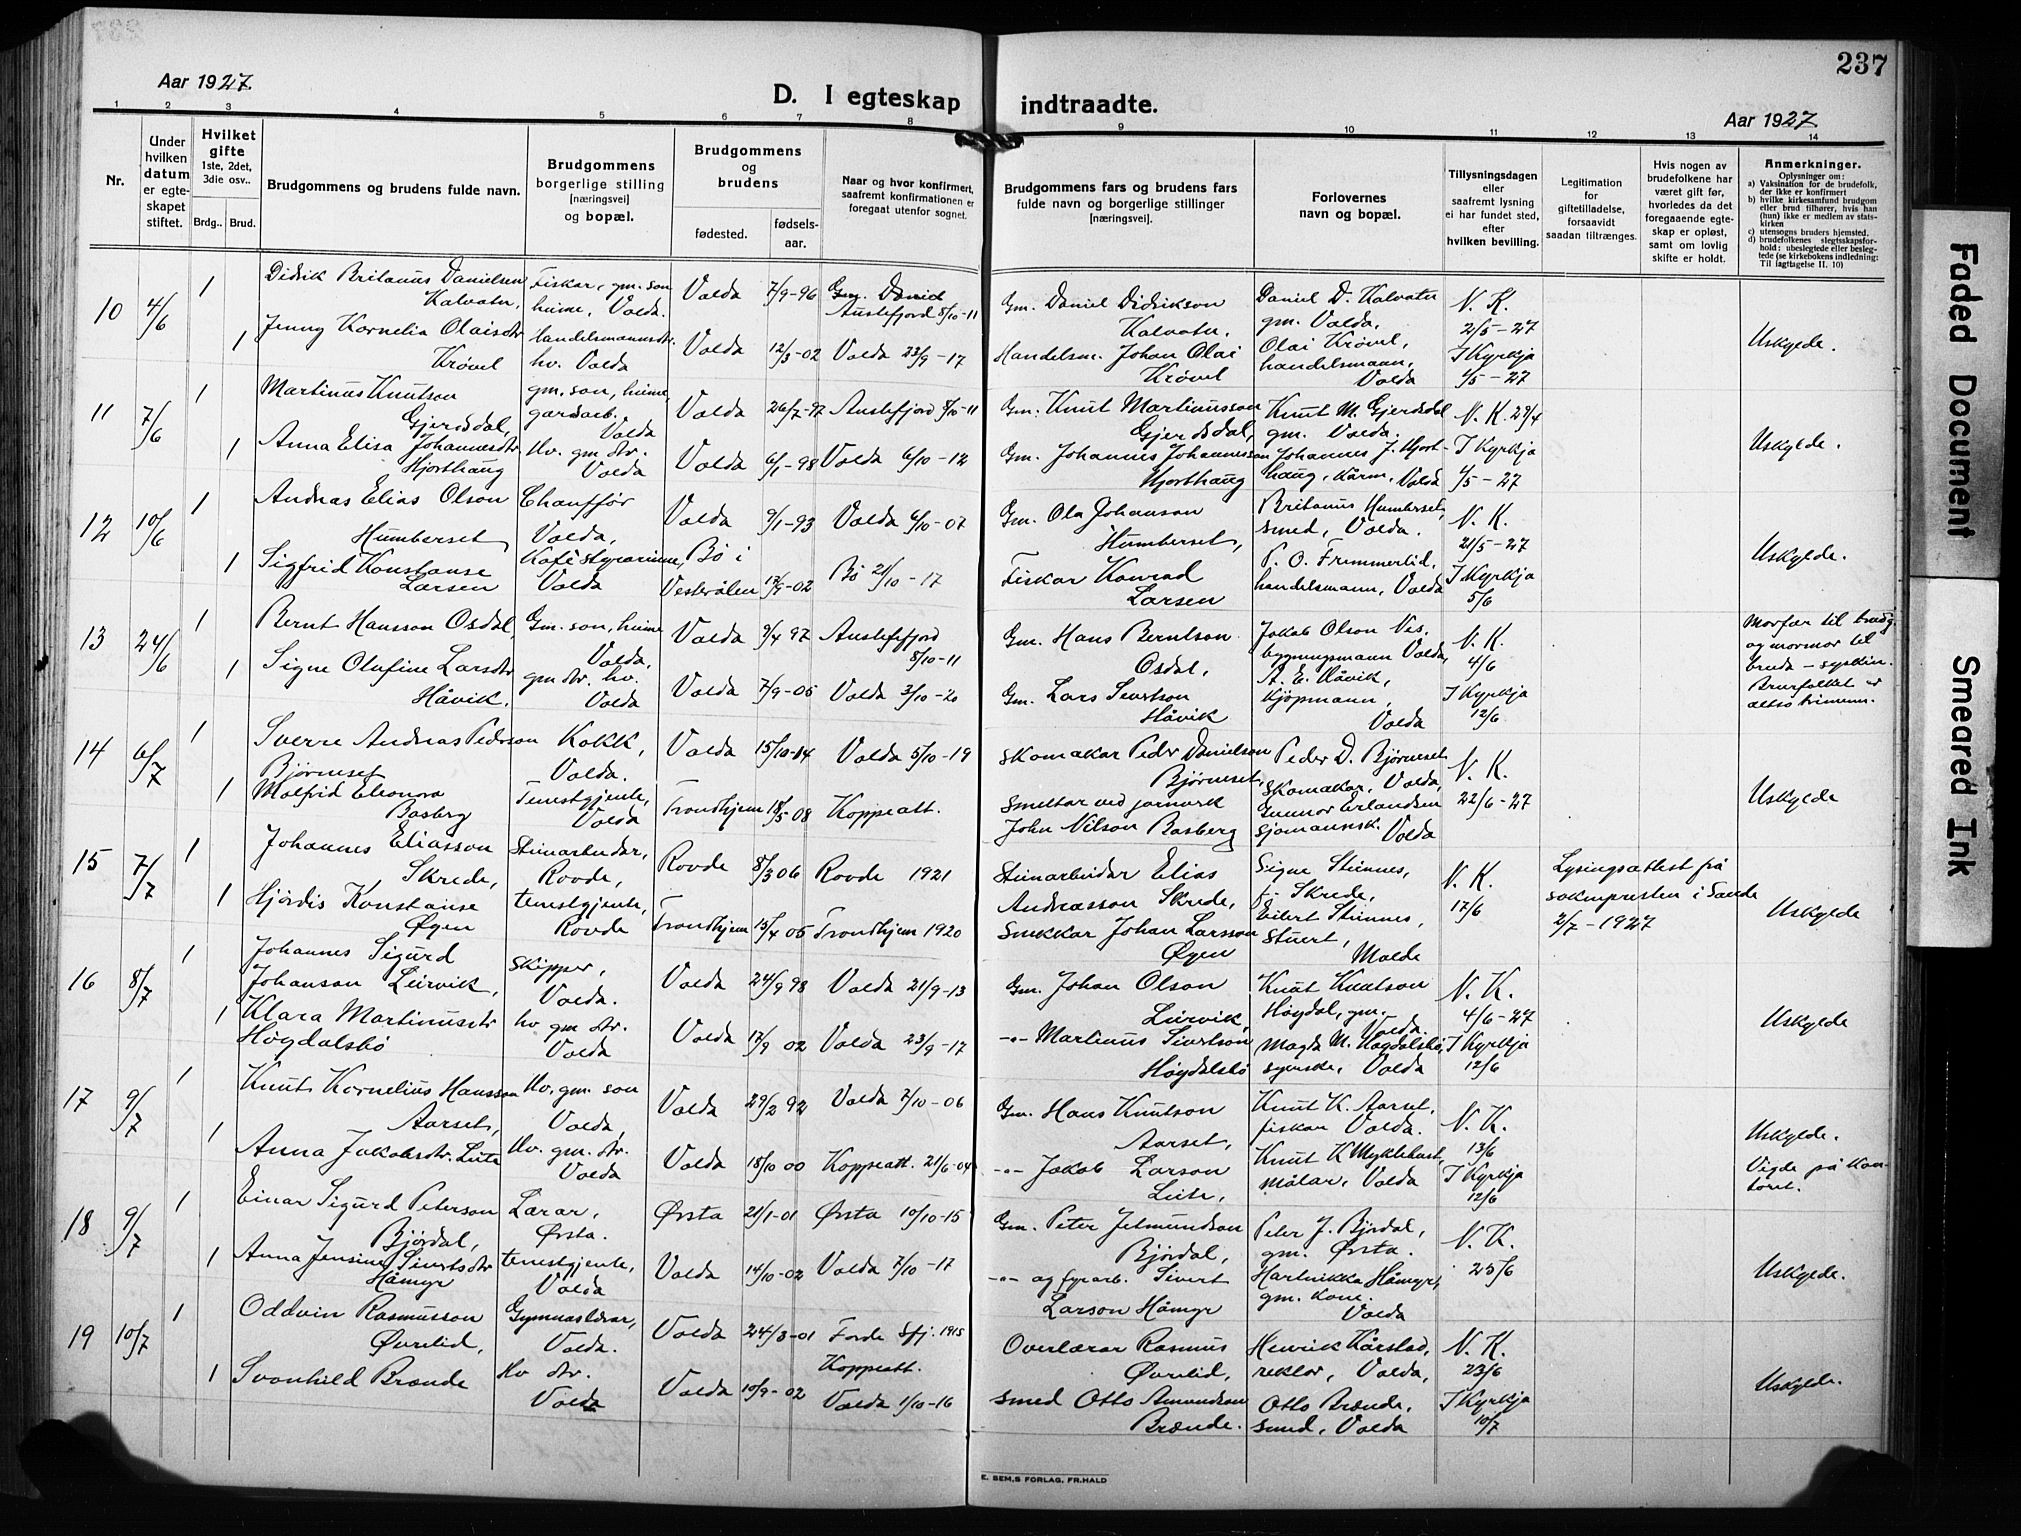 237
Aar 1927.
D. I egteskap indtraadte.
Aar 1927.
1 2 3 4 5 6 7 8 9 10 11 12 13 14
Nr.
Under hvilken datum er egte-skapet stiftet.
Hvilket gifte 1ste, 2det, 3die osv..
Brdg.. Brud.
Brudgommens og brudens fulde navn.
Brudgommens borgerlige stilling [næringsvei] og bopæl.
Brudgommens og brudens
fødested. fødsels-aar.
Naar og hvor konfirmert, saafremt konfirmationen er foregaat utenfor sognet.
Brudgommens fars og brudens fars fulde navn og borgerlige stillinger [næringsvei].
Forlovernes navn og bopæl.
Tillysningsdagen eller saafremt lysning ei har fundet sted, efter hvilken bevilling.
Legitimation for giftetilladelse, forsaavidt saadan tiltrænges.
Hvis nogen av brudefolkene har været gift før, hvorledes da det foregaaende egte-skap er opløst, samt om lovlig skifte er holdt.
Anmerkninger.
Oplysninger om:
a) Vaksination for de brudefolk, der ikke er konfirmert
b) hvilke kirkesamfund brudgom eller brud tilhører, hvis han (hun) ikke er medlem av stats-kirken
c) utensogns bruders hjemsted.
d) brudefolkenes slegtsskapsfor-hold: ubeslegtede eller besleg-tede (se kirkebokens indledning: Til Iagttagelse II. 10)
10 4/6 1 Didrik Britanus Danielsen Kalvatn, Fiskar, gm. son heime, Volda. Volda 7/9-96 Austefjord 8/10-11 Gm. Daniel Didrikson Kalvatn. Daniel D. Kalvatn gm. Volda, N. K. 2/5-27
1 Jenny Kornelia Olaisdtr Krøvel handelsmannsdtr. hv. Volda Volda 12/3-02 Volda 23/9-17 Handelsm. Johan Olai Krøvel Olai Krøvel, handelsmann, Volda I Kyrkja 1/5-27 Uskylde.
11 7/6 1 Martinus Knutson Gjerdsdal, gm. son, heime, gardsarb. Volda Volda 26/7-97 Austefjord 8/10-11 Gm. Knut Martinusson Gjerdsdal, Knut M. Gjerdsdal gm. Volda. N. K. 29/4
1 Anna Elisa Johannesdtr Hjorthaug Hv. gm dtr. Volda Volda 6/1-98 Volda 6/10-12 Gm. Johannes Johannesson Hjorthaug Johannes J. Hjort-haug, Kårm. Volda I Kyrkja 1/5-27 Uskylde.
12 10/6 1 Andreas Elias Olson Humberset Chauffør Volda, Volda 9/1-93 Volda 6/10-07 Gm. Ola Johanson Humberset, Britanus Humberset, smed, Volda. N. K. 21/5-27
1 Sigfrid Konstanse Larsen Kaféstyrarinne, Volda Bø i Vesterålen 17/9-02 Bø 21/10-17 Fiskar Konrad Larsen P. O. Frammerlid, handelsmann, Volda I Kyrkja 5/6 Uskylde.
13 24/6 1 Bernt Hansson Osdal, Gm. son, heime Volda, Volda 9/4 97 Austefjord 8/10-11 Gm. Hans Berntson Osdal, Jakob Olson Nes, bygningsmann Volda, N. K. 4/6
1 Signe Olufine Larsdtr Håvik. gm dtr. hv. Volda Volda 7/9-05 Volda 3/10-20 Gm. Lars Sivertson Håvik A. E. Håvik, kjøpmann, Volda I Kyrkja 12/6 Morfar til brudg. og mormor til bruda – syskin. Brurfolket er altso trimenn.
14 6/7 1 Sverre Andreas Pederson Bjørneset Kokk, Volda. Volda 15/10-14 Volda 5/10-19 Skomakar Peder Danielson Bjørneset, Peder D. Bjørneset Skomakar, Volda, N. K. 22/6-27
1 Målfrid Eleonora Basberg Tenestgjente, Volda Trondhjem 18/5 08 Koppeatt. Smeltar ved jarnverk John Nilson Basberg Gunnar Erlandsen sjømannsk. Volda Uskylde
15 7/7 1 Johannes Eliasson Skrede, Steinarbeidar, Rovde, Rovde 8/3 06 Rovde 1921 Steinarbeidar Elias Andreasson Skrede, Signe Stinnes, f. Skrede, N. K. 17/6 Lysingsattest på soknepresten i Sande 2/7-1927
1 Hjørdis Konstanse Øyen tenestgjente, Rovde Trondhjem 15/4 05 Trondhjem 1920 Snekkar Johan Larsson Øyen Eilert Stinnes, Stuert, Molde Uskylde
16 8/7 1 Johannes Sigurd Johanson Leirvik, Skipper, Volda. Volda 24/9 98 Volda 21/9-13 Gm. Johan Olson Leirvik, Knut Knutson Høydal, gm. Volda N. K. 4/6-27
1 Klara Martinusdtr Høydalsbø hv gm dtr. Volda Volda 17/9 02 Volda 23/9-17 -"- Martinus Sivertson Høydalsbø Magda M. Høydalsbø, syerske, Volda I Kyrkja 12/6 Uskylde
17 9/7 1 Knut Kornelius Hansson Aarset, Hv. gm. son Volda, Volda 29/2 92 Volda 7/10-06 Gm. Hans Knutson Aarset, Knut K. Aarset, fiskar Volda. N. K. 13/6
1 Anna Jakobsdtr. Lute Hv. gm. dtr. Volda Volda 18/10 00 Koppeatt. 21/6-04 -"- Jakob Larson Lute, Knut K Myklebust, målar, Volda I Kyrkja 12/6 Uskylde. Vigde på kon-toret.
18 9/7 1 Einar Sigurd Peterson Bjørdal, Lærar, Ørsta. Ørsta 21/1-01 Ørsta 10/10-15 Gm. Peter Jetmundson Bjørdal, Peter J. Bjørdal, gm. Ørsta. N. K. 25/6
1 Anna Jensine Sivertsdtr Håmyr tenestgjente, Volda Volda 14/10-02 Volda 7/10-17 -"- og fyrarb. Sivert Larson Håmyr Hartvikka Håmyr, gm. kone. Volda Uskylde.
19 10/7 1 Oddvin Rasmusson Øvrelid, Gymnaslærar, Volda. Volda 24/3-01 Førde Sfj. 1915 Koppeatt. Overlærar Rasmus Øvrelid, Henrik Kårstad, rektor, Volda, N. K. 23/6
1 Svanhild Brænde Hv dtr. Volda Volda 10/9-02 Volda 1/10-16 smed Otto Amundson Brænde. Otto Brænde, smed, Volda I Kyrkja 10/7 Uskylde.
E. SEM,S FORLAG, FR.HALD
Faded Document
Smeared Ink